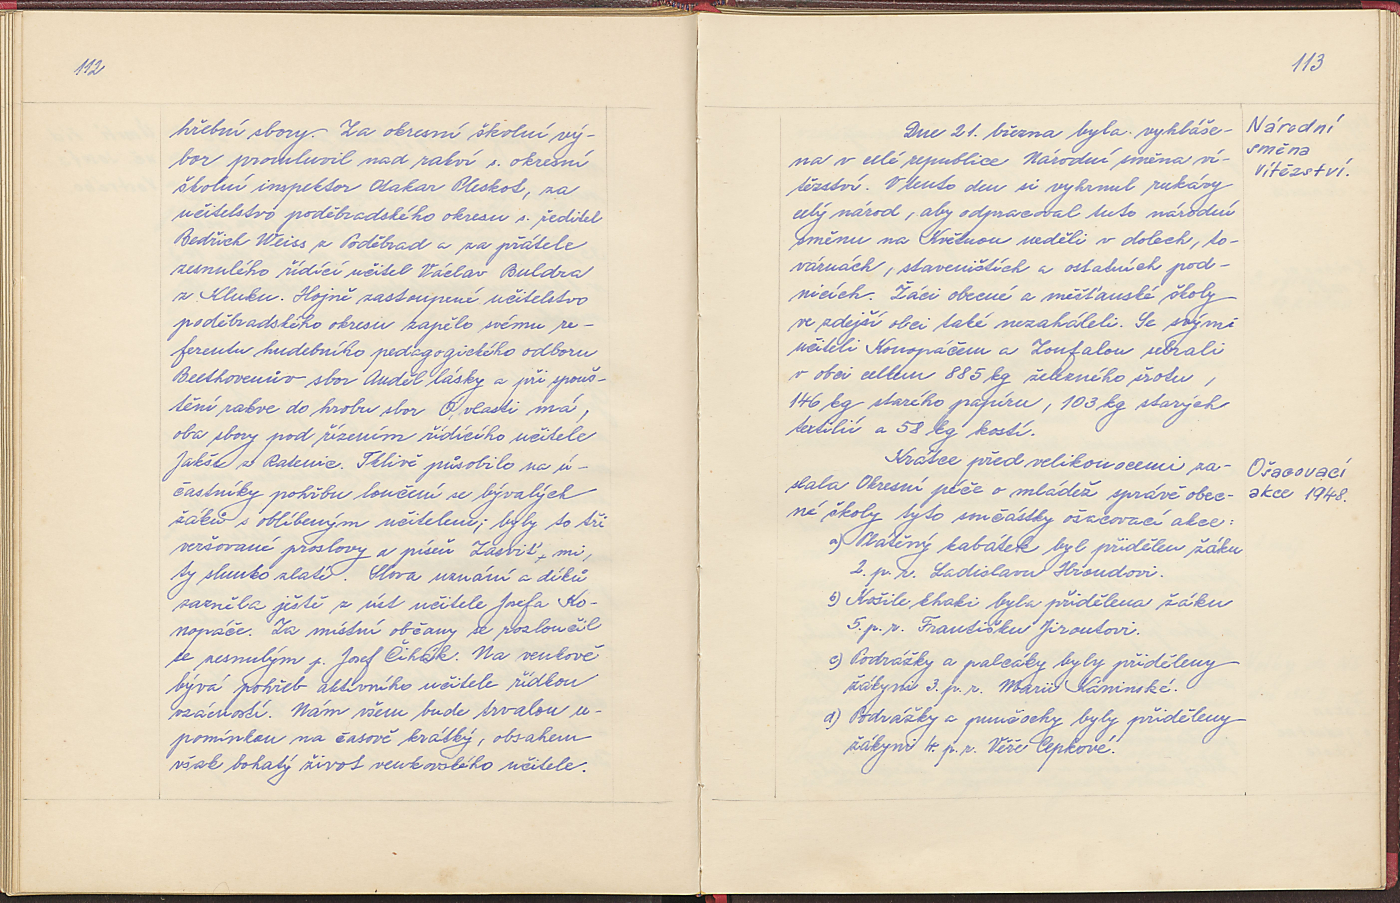 112
hřební sbory. Za okresní školní vý-
bor promluvil nad rakví s. okresní
školní inspektor Otakar Pleskot, za
učitelstvo poděbradského okresu s. ředitel
Bedřich Weiss z Poděbrad a za přátele
zesnulého řídící učitel Václav Buldra
z Kluku. Hojně zastoupené učitelstvo
poděbradského okresu zapělo svému re-
ferentu hudebního pedagogického odboru
Beethovenův sbor Anděl lásky a při spouš-
tění rakve do hrobu sbor Ó, vlasti má,
oba sbory pod řízením řídícího učitele
Jakše z Ratenic. Tklivě působilo na ú-
častníky pohřbu loučení se bývalých
žáků s oblíbeným učitelem; byly to tři
veršované proslovy a píseň Zasviť mi,
ty slunko zlaté. Slova uznání a díků
zazněla ještě z úst učitele Josefa Ko-
nopáče. Za místní občany se rozloučil
se zesnulým p. Josef Čihák. Na venkově
bývá pohřeb aktivního učitele řídkou
vzácností. Nám všem bude trvalou u-
pomínkou na časově krátký, obsahem
však bohatý život venkovského učitele.
113
Dne 21. března byla vyhláše-
na v celé republice Národní směna ví-
tězství. V tento den si vyhrnul rukávy
celý národ, aby odpracoval tuto národní
směnu na Květnou neděli v dolech, to-
várnách, staveništích a ostatních pod-
nicích. Žáci obecné a měšťanské školy
ve zdejší obci také nezaháleli. Se svými
učiteli Konopáčem a Zoufalou sebrali
v obci celkem 885 kg železného šrotu,
146 kg starého papíru, 103 kg starých
textilií a 58 kg kostí.
Krátce před velikonocemi za-
slala Okresní péče o mládež správě obec-
né školy tyto součástky ošacovací akce:
a) Plátěný kabátek byl přidělen žáku
2. p. r. Ladislavu Hrsudovi.
b) Košile khaki byla přidělena žáku
5. p. r. Františku Jiroutovi.
c) Podrážky a palčáky byly přiděleny
žákyni 3. p. r. Marii Káninské.
d) Podrážky a punčochy byly přiděleny
žákyni 4. p. r. Věře Cepkové.
Národní
směna
vítězství.
Ošacovací
akce 1948.